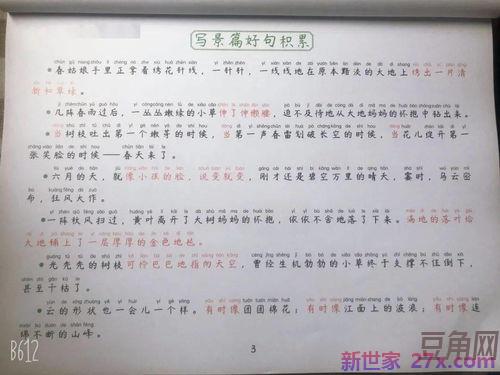 写景篇好句积累
春姑娘手里正拿着绣花针线，一针针，一线线地在原本黯淡的大地上绣出一片清
新和翠绿。
几阵春雨过后，一丛丛嫩绿的小草伸了伸懒腰，迫不及待地从大地妈妈的怀抱中钻出来。
当树枝吐出第一个嫩芽的时候，当第一声春雷划破长空的时候，当花儿绽开第一
张笑脸的时候——春天来了。
六月的天，就像小孩的脸，说变就变，刚才还是碧空万里的晴天，霎时，乌云密
布，狂风大作。
一阵秋风扫过，黄叶离开了大树妈妈的怀抱，依依不舍地落了下来。满地的落叶给
大地铺上了一层厚厚的金色地毯。
光秃秃的树枝可怜巴巴地指向天空，曾经生机勃勃的小草终于支撑不住倒下，
甚至干枯了。
云的形状也一会儿一个样。有时像团团棉花；有时像江面上的波浪；有时像连
绵不断的山峰。
3
B612
豆角网
新世家 27x.com